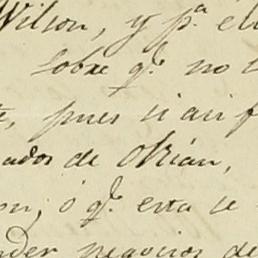 Wilson, y pª el
sobre qe no
pues si asi f
ados de Orián,
on, ó qe esta se
nder negocios de